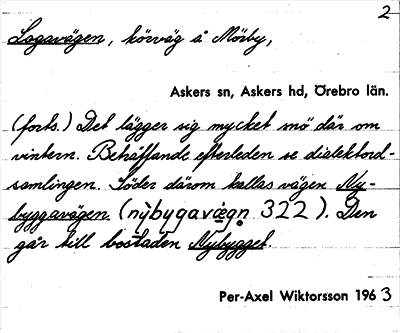 2
Sagavägen, körväg å Mörby,
Askers sn, Askers hd, Örebro län.
(forts.) Det lägger sig mycket snö där om
vintern. Beträffande efterleden se dialektord-
samlingen. Söder därom kallas vägen Ny-
byggavägen. (nỳbygavæ̀gn̥ 322). Den
går till bostaden Nybygget.
Per-Axel Wiktorsson 1963